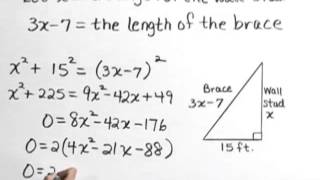 3x-7 = the length of the brace
x² + 15² = (3x-7)²
x² + 225 = 9x² - 42x + 49
0 = 8x² - 42x - 176
0 = 2(4x² - 21x - 88)
0 = 2
Brace
3x-7
Wall
stud
x
15 ft.